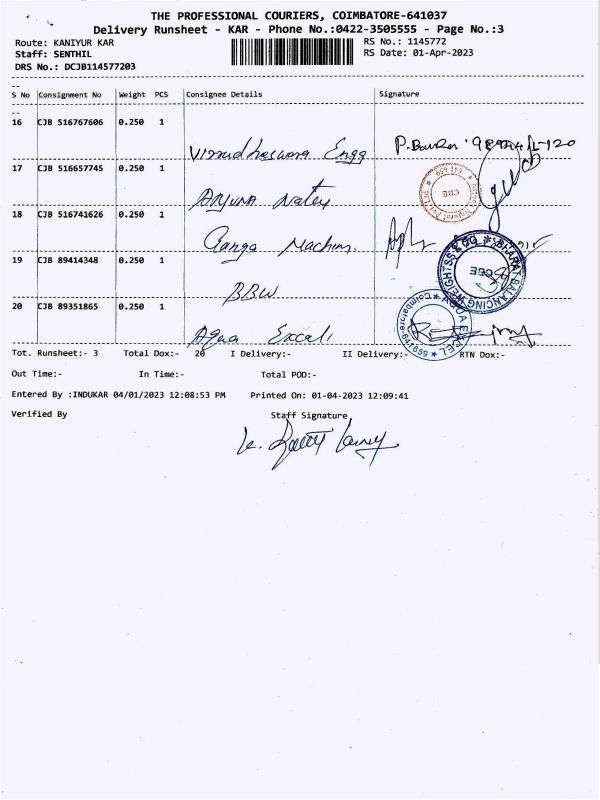 THE PROFESSIONAL COURIERS, COIMBATORE-641037
Delivery Runsheet - KAR - Phone No.:0422-3505555 - Page No.:3
Route: KANIYUR KAR
Staff: SENTHIL
DRS No.: DCJB114577203
RS No.: 1145772
RS Date: 01-Apr-2023
S No Consignment No Weight PCS Consignee Details Signature
16 CJB 516767606 0.250 1
Engg
17 CJB 516657745 0.250 1
Arjuna
18 CJB 516741626 0.250 1
Ganga Machin.
19 CJB 89414348 0.250 1
BBW
20 CJB 89351865 0.250 1
Aqua Excel
CBE
BHARAT BALANCING WEIGHTSS & CO
CBE
AQUA EXCEL
Coimbatore-641659
Tot. Runsheet:- 3 Total Dox:- 20 I Delivery:- II Delivery:- RTN Dox:-
Out Time:- In Time:- Total POD:-
Entered By :INDUKAR 04/01/2023 12:08:53 PM Printed On: 01-04-2023 12:09:41
Verified By Staff Signature